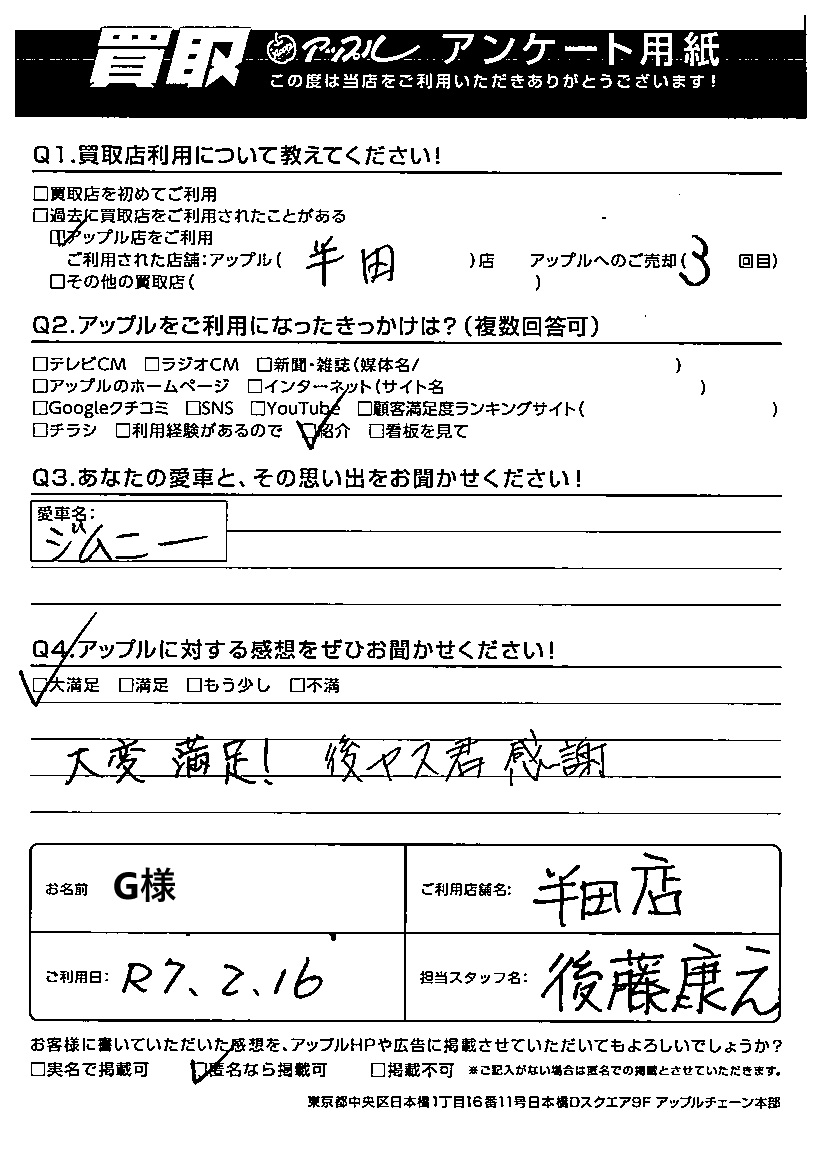 買取 アップル アンケート用紙
この度は当店をご利用いただきありがとうございます!
Q1.買取店利用について教えてください!
□買取店を初めてご利用
□過去に買取店をご利用されたことがある
□アップル店をご利用
ご利用された店舗:アップル( 半田 )店 アップルへのご売却( 3 回目)
□その他の買取店( )
Q2.アップルをご利用になったきっかけは?(複数回答可)
□テレビCM □ラジオCM □新聞・雑誌(媒体名/ )
□アップルのホームページ □インターネット(サイト名 )
□Googleクチコミ □SNS □YouTube □顧客満足度ランキングサイト( )
□チラシ □利用経験があるので □紹介 □看板を見て
Q3.あなたの愛車と、その思い出をお聞かせください!
愛車名:
ジムニー
Q4.アップルに対する感想をぜひお聞かせください!
□大満足 □満足 □もう少し □不満
大変 満足! 後ヤス君 感謝
お名前 G様 ご利用店舗名: 半田店
ご利用日: R7、2、16 担当スタッフ名: 後藤康え
お客様に書いていただいた感想を、アップルHPや広告に掲載させていただいてもよろしいでしょうか?
□実名で掲載可 □匿名なら掲載可 □掲載不可 ※ご記入がない場合は匿名での掲載とさせていただきます。
東京都中央区日本橋1丁目16番11号日本橋Dスクエア9F アップルチェーン本部